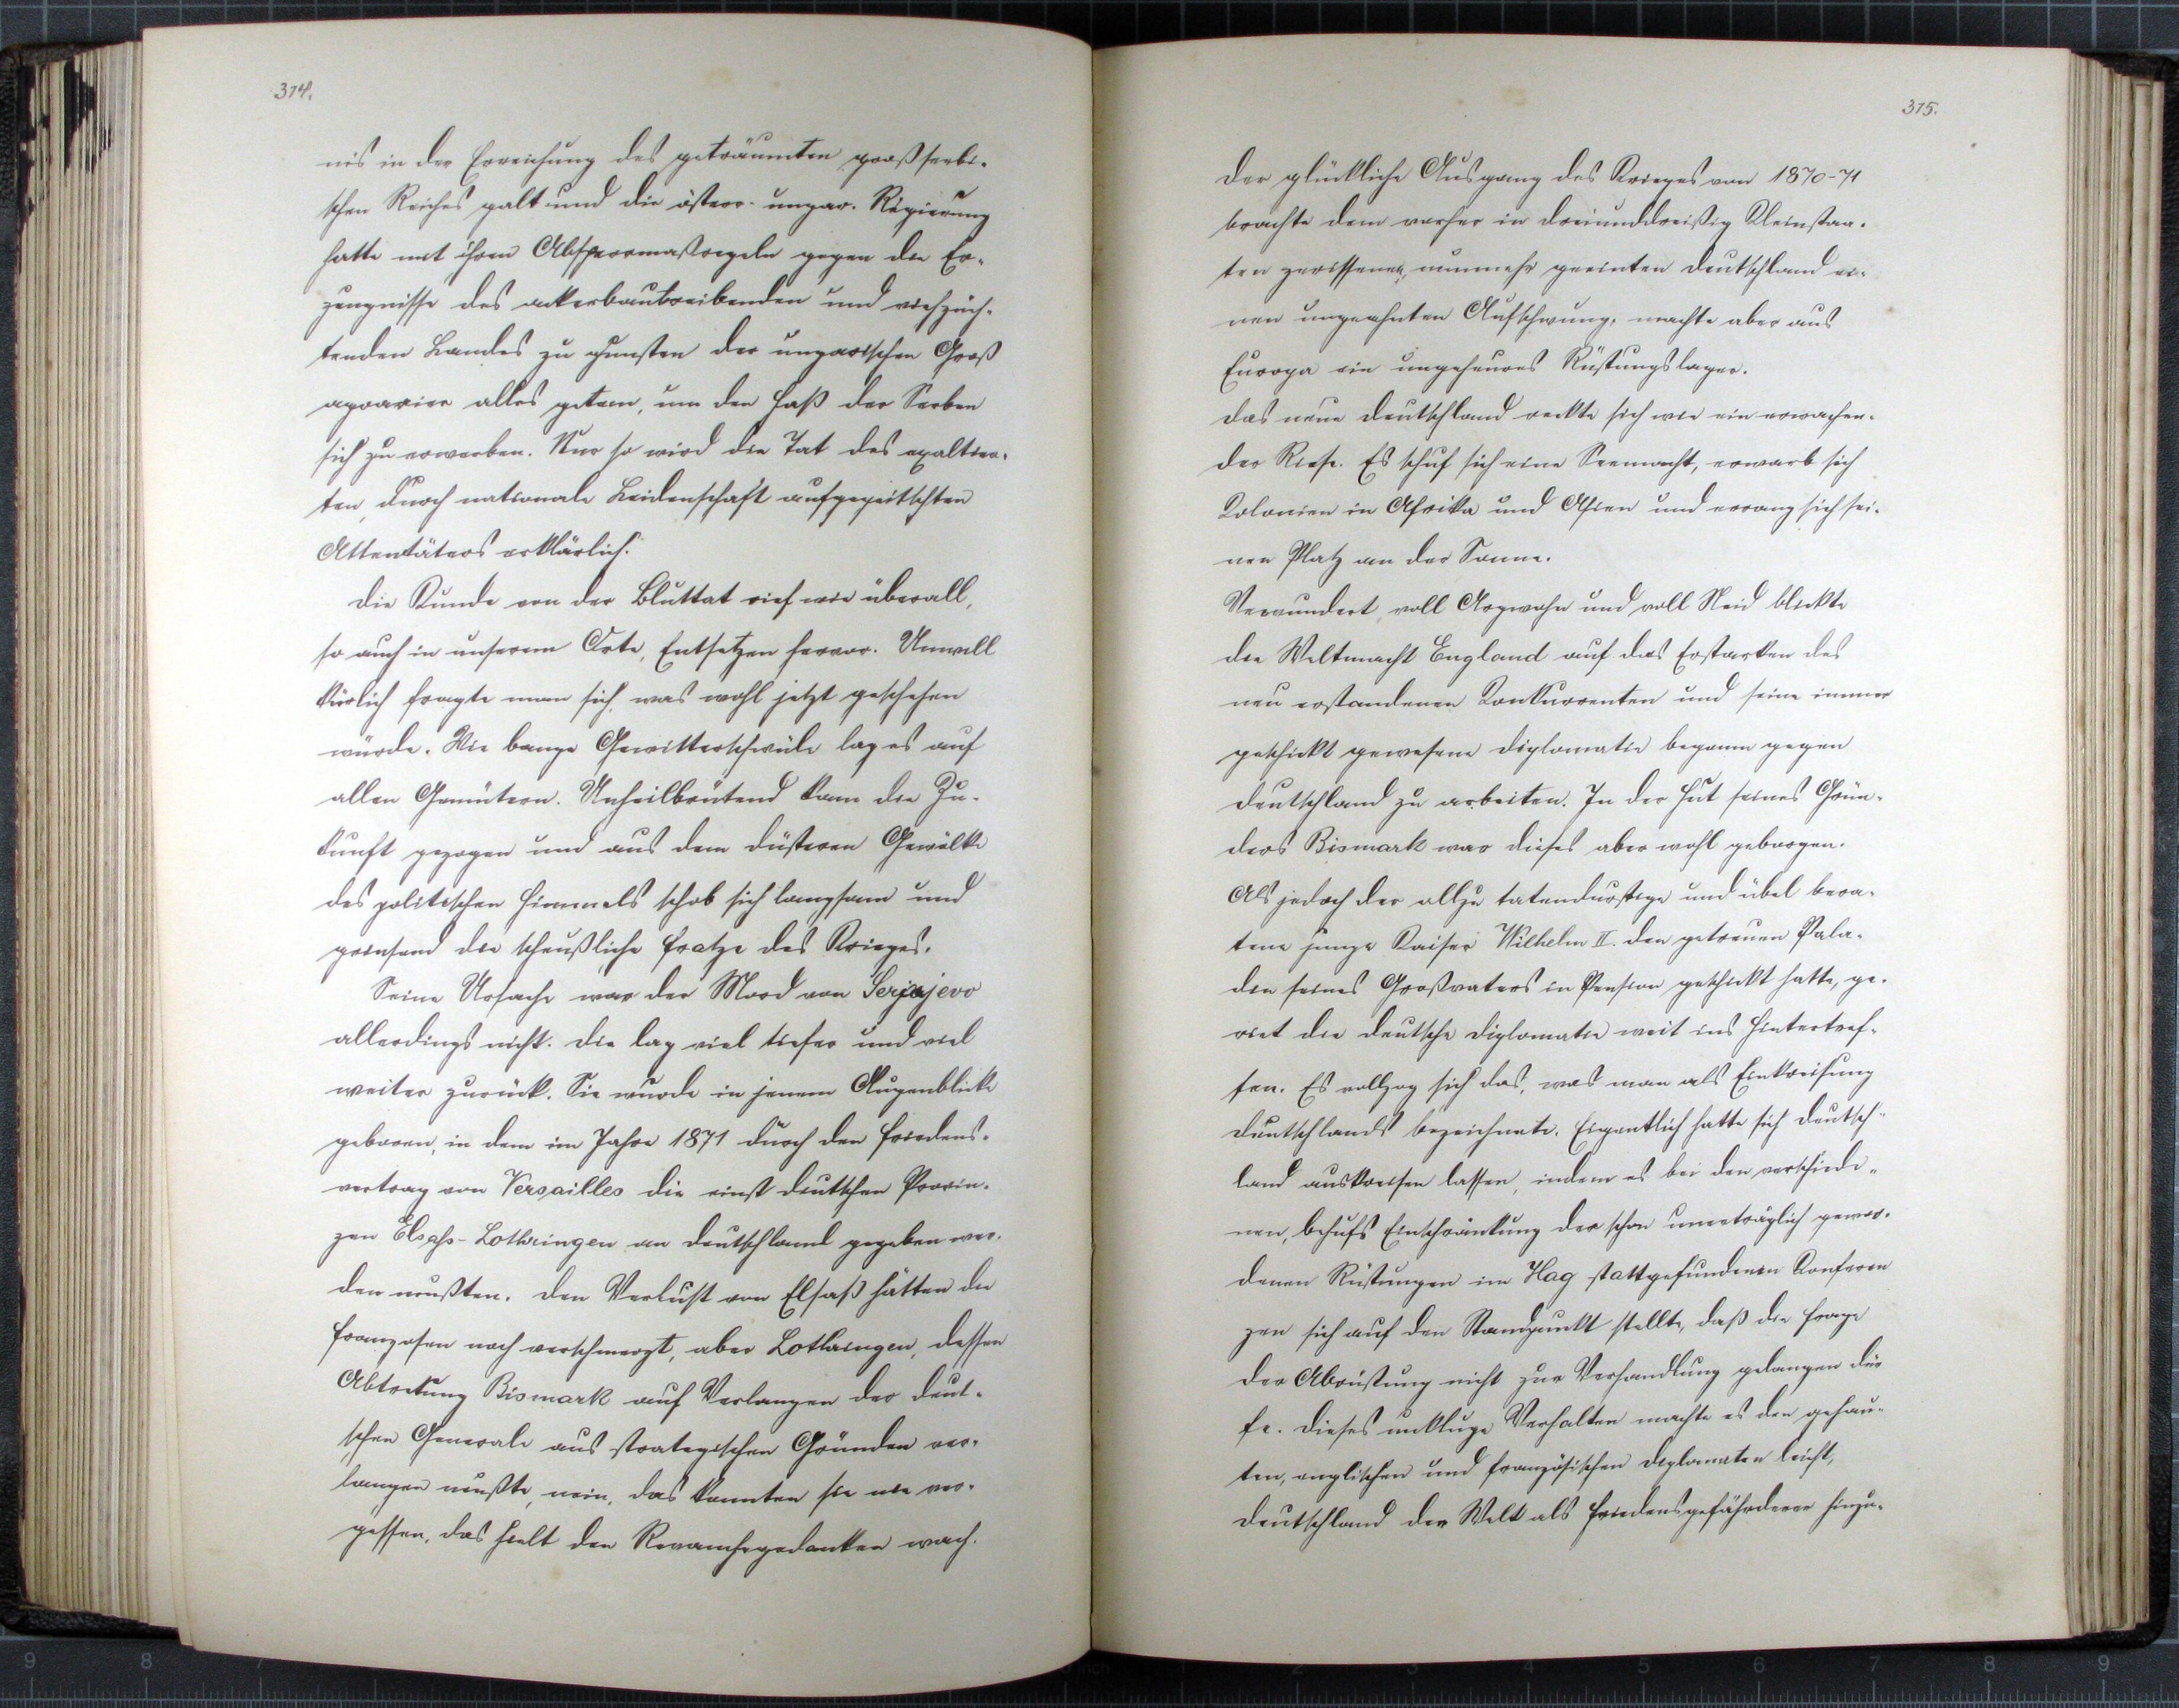 314.
nis in der Erreichung des geträumten großserbi-
schen Reiches galt und die österr.-ungar. Regierung
hatte mit ihren Absperrmaßregeln gegen die Er-
zeugnisse des ackerbautreibenden und viehzüch-
tenden Landes zu gunsten der ungarischen Groß
agrarier alles getan, um den Haß der Serben
sich zu erwerben. Nur so wird die Tat des exaltier-
ten, durch nationale Leidenschaft aufgepeitschten
Attentäters erklärlich.
Die Kunde von der Bluttat rief wie überall,
so auch in unserem Orte, Entsetzen hervor. Unwill
kürlich fragte man sich, was wohl jetzt geschehen
würde. Wie bange Gewitterschwüle lag es auf
allen Gemütern. Unheilbrütend kam die Zu-
kunft gezogen und aus dem düsteren Gewölke
des politischen Himmels schob sich langsam und
grinsend die scheußliche Fratze des Krieges.
Seine Ursache war der Mord von Serjajevo
allerdings nicht. Die lag viel tiefer und viel
weiter zurück. Sie wurde in jenem Augenblicke
geboren, in dem im Jahre 1871 durch den Friedens-
vertrag von Versailles die einst deutschen Provin-
zen Elsaſs-Lothringen an Deutschland gegeben wer-
den mußten. Den Verlust von Elsaß hätten die
Franzosen noch verschmerzt, aber Lothringen, dessen
Abtretung Bismark auf Verlangen der deut-
schen Generale aus strategischen Gründen ver-
langen mußte, nein, das konnten sie nie ver-
gessen, das hielt den Revanchegedanken wach.
315.
Der glückliche Ausgang des Krieges von 1870-71
brachte dem vorher in dreiunddreißig Kleinstaa-
ten zerissenen, nunmehr geeinten Deutschland ei-
nen ungeahnten Aufschwung, machte aber aus
Europa ein ungeheures Rüstungslager.
Das neue Deutschland reckte sich wie ein erwachen-
der Riese. Es schuf sich eine Seemacht, erwarb sich
Kolonien in Afrika und Asien und errang sich sei-
nen Platz an der Sonne.
Verwundert, voll Argwohn und voll Neid blickte
die Weltmacht England auf das Erstarken des
neu erstandenen Konkurrenten und seine immer
geschickt gewesene Diplomatie begann gegen
Deutschland zu arbeiten. In der Hut seines Grün-
ders Bismark war dieses aber wohl geborgen.
Als jedoch der allzu tatendurstige und übel bera-
tene junge Kaiser Wilhelm II. den getreuen Pala-
din seines Großvaters in Pension geschickt hatte, ge-
riet die deutsche Diplomatie weit ins Hintertref-
fen. Es vollzog sich das, was man als Einkreisung
Deutschlands bezeichnete. Eigentlich hatte sich Deutsch-
land auskreisen lassen, indem es bei den verschiede-
nen, behufs Einschränkung der schon unerträglich gewor-
denen Rüstungen im Hag stattgefundenen Konferen
zen sich auf den Standpunkt stellte, daß die Frage
der Abrüstung nicht zur Verhandlung gelangen dür
fe. Dieses unkluge Verhalten machte es den gehau-
ten, englischen und französischen Diplomaten leicht,
Deutschland der Welt als Friedensgefährderer hinzu-